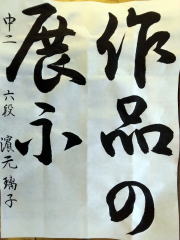 作品の
展示
中二 六段 濵元璃子